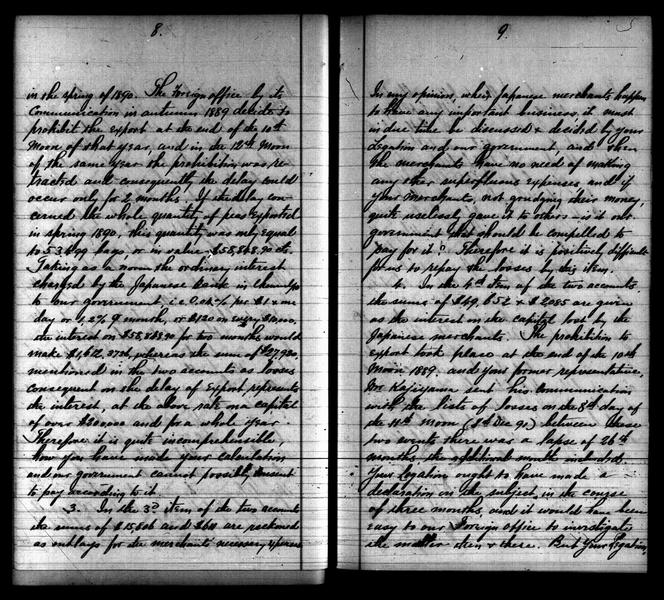 8.
in the spring of 1890. The Foreign office by its
Communication in autumn 1889 decide to
prohibit the export at the end of the 10th
Moon of that year, and in the 12th Moon
of the same year the prohibition was re-
tracted and consequently the delay could
occur only for 2 months. If the delay con-
cerned the whole quantity of peas exported
in spring 1890, this quantity was only equal
bags, or in value
Taking as a norm the ordinary interest
charged by the Japanese Bank in Chemulpo
to our government, i.e. per $1 & one
day or 1,2% a month, or $120 on every $10,000,
the interest on for two months would
make whereas the sum of
mentioned in the two accounts as losses
consequent on the delay of export, represents
the interest, at the above rate on a capital
of over $200000 and for a whole year.
Therefore it is quite incomprehensible,
how you have made your calculation
and our government cannot possibly consent
to pay according to it.
3. In the 3d item of the two accounts
the sums of and are reckoned
as outlays for the merchants necessary expenses
9.
5
In my opinion, when Japanese merchants happen
to have any important business, it must
in due time be discussed & decided by your
Legation and our government, and then
the merchants have no need of making
any other superfluous expenses and if
your Merchants, not grudging their money,
quite uselessly gave it to others – is it our
government that should be compelled to
pay for it? Therefore it is positively difficult
for us to repay the losses by this item.
In the 4th item of the two accounts
the sums of $69,652 & $2085 are given
as the interest on the capital lost by the
Japanese merchants. The prohibition to
export took place at the end of the 10th
Moon 1889, and your former representative,
Mr Kajiyama sent his communication
with the lists of losses on the day of
the 11th moon between these
two events there was a lapse of 26th
months the additional month included.
Your Legation ought to have made a
declaration on the subject, in the course
of three months, and it would have been
easy to our Foreign office to investigate
the matter then & there. But Your Legation,